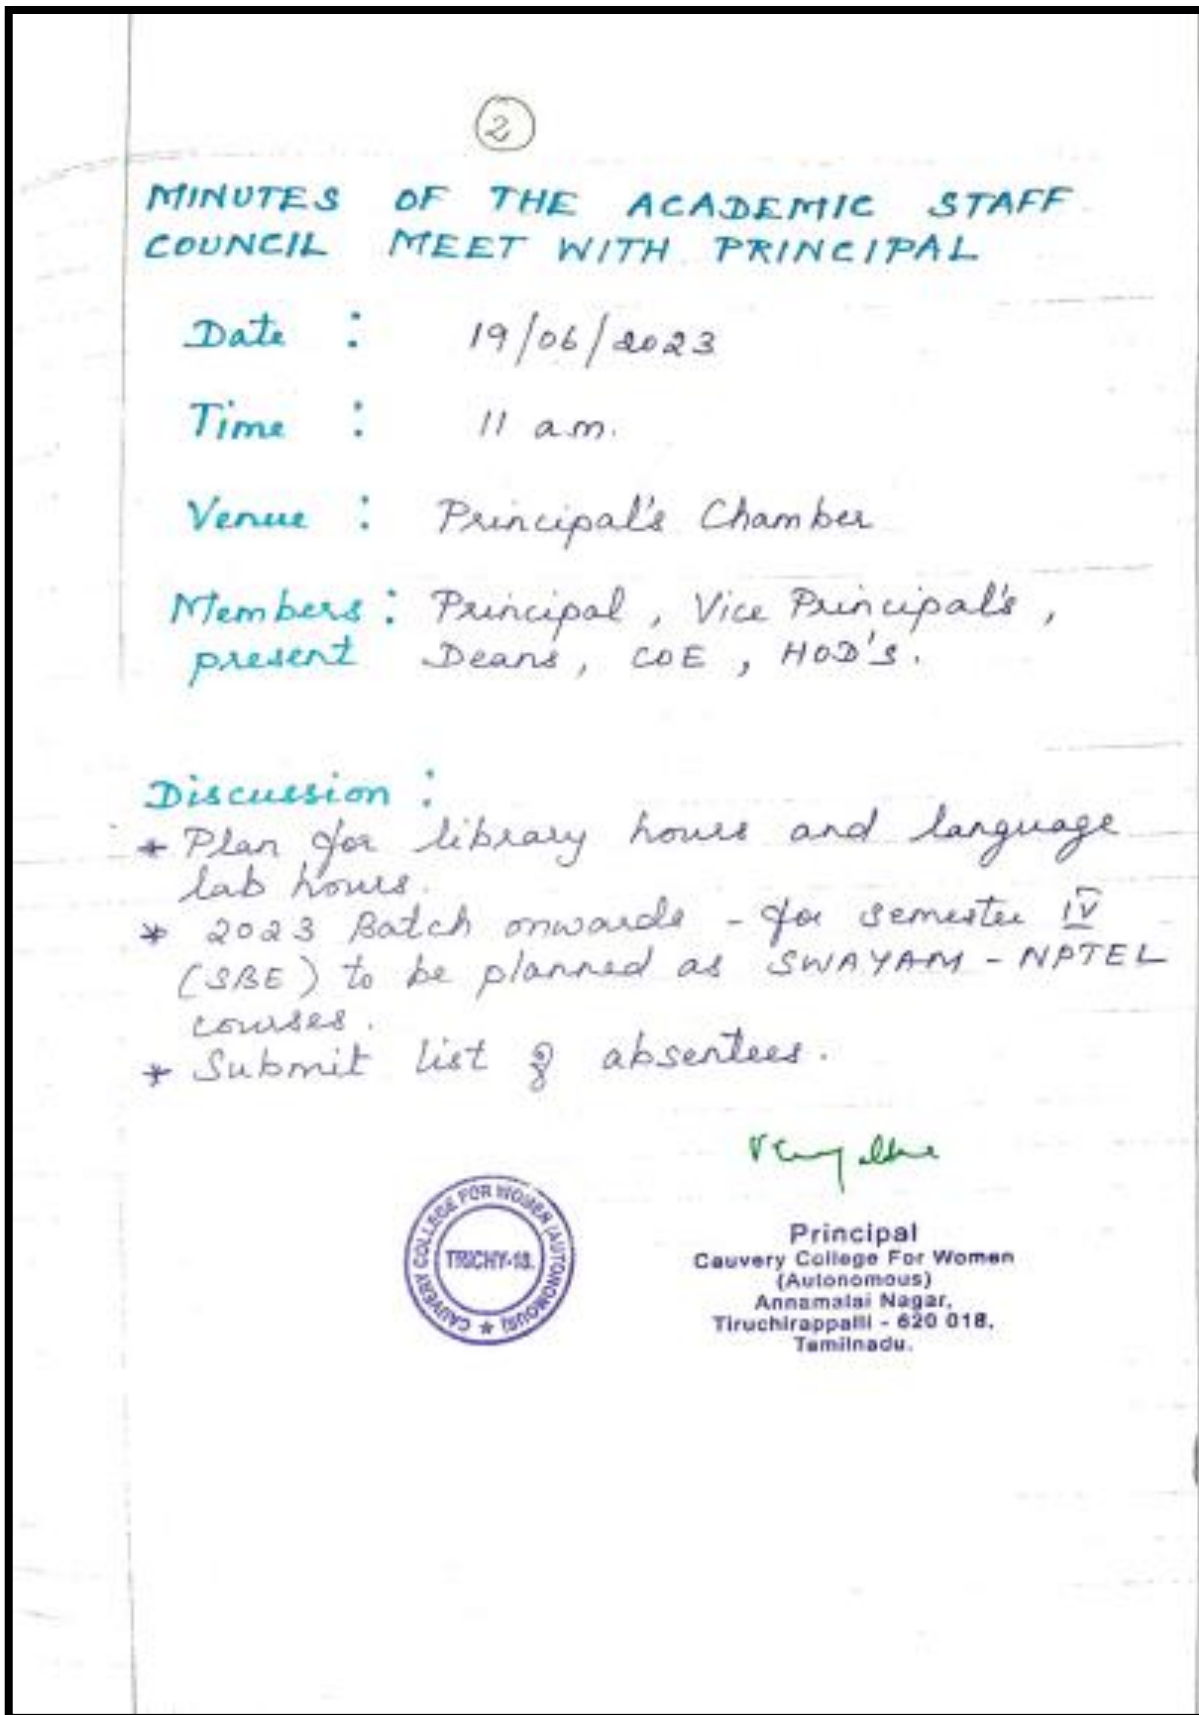 2
MINUTES OF THE ACADEMIC STAFF
COUNCIL MEET WITH PRINCIPAL
Date : 19/06/2023
Time : 11 a.m.
Venue : Principal's Chamber
Members : Principal, Vice Principal's,
present Deans, COE, HOD's.
Discussion :
* Plan for library hours and language
lab hours.
* 2023 Batch onwards - for semester IV
(SBE) to be planned as SWAYAM - NPTEL
courses.
* Submit list of absentees.
CAUVERY COLLEGE FOR WOMEN (AUTONOMOUS) ★
TRICHY-18.
Principal
Cauvery College For Women
(Autonomous)
Annamalai Nagar,
Tiruchirappalli - 620 018.
Tamilnadu.